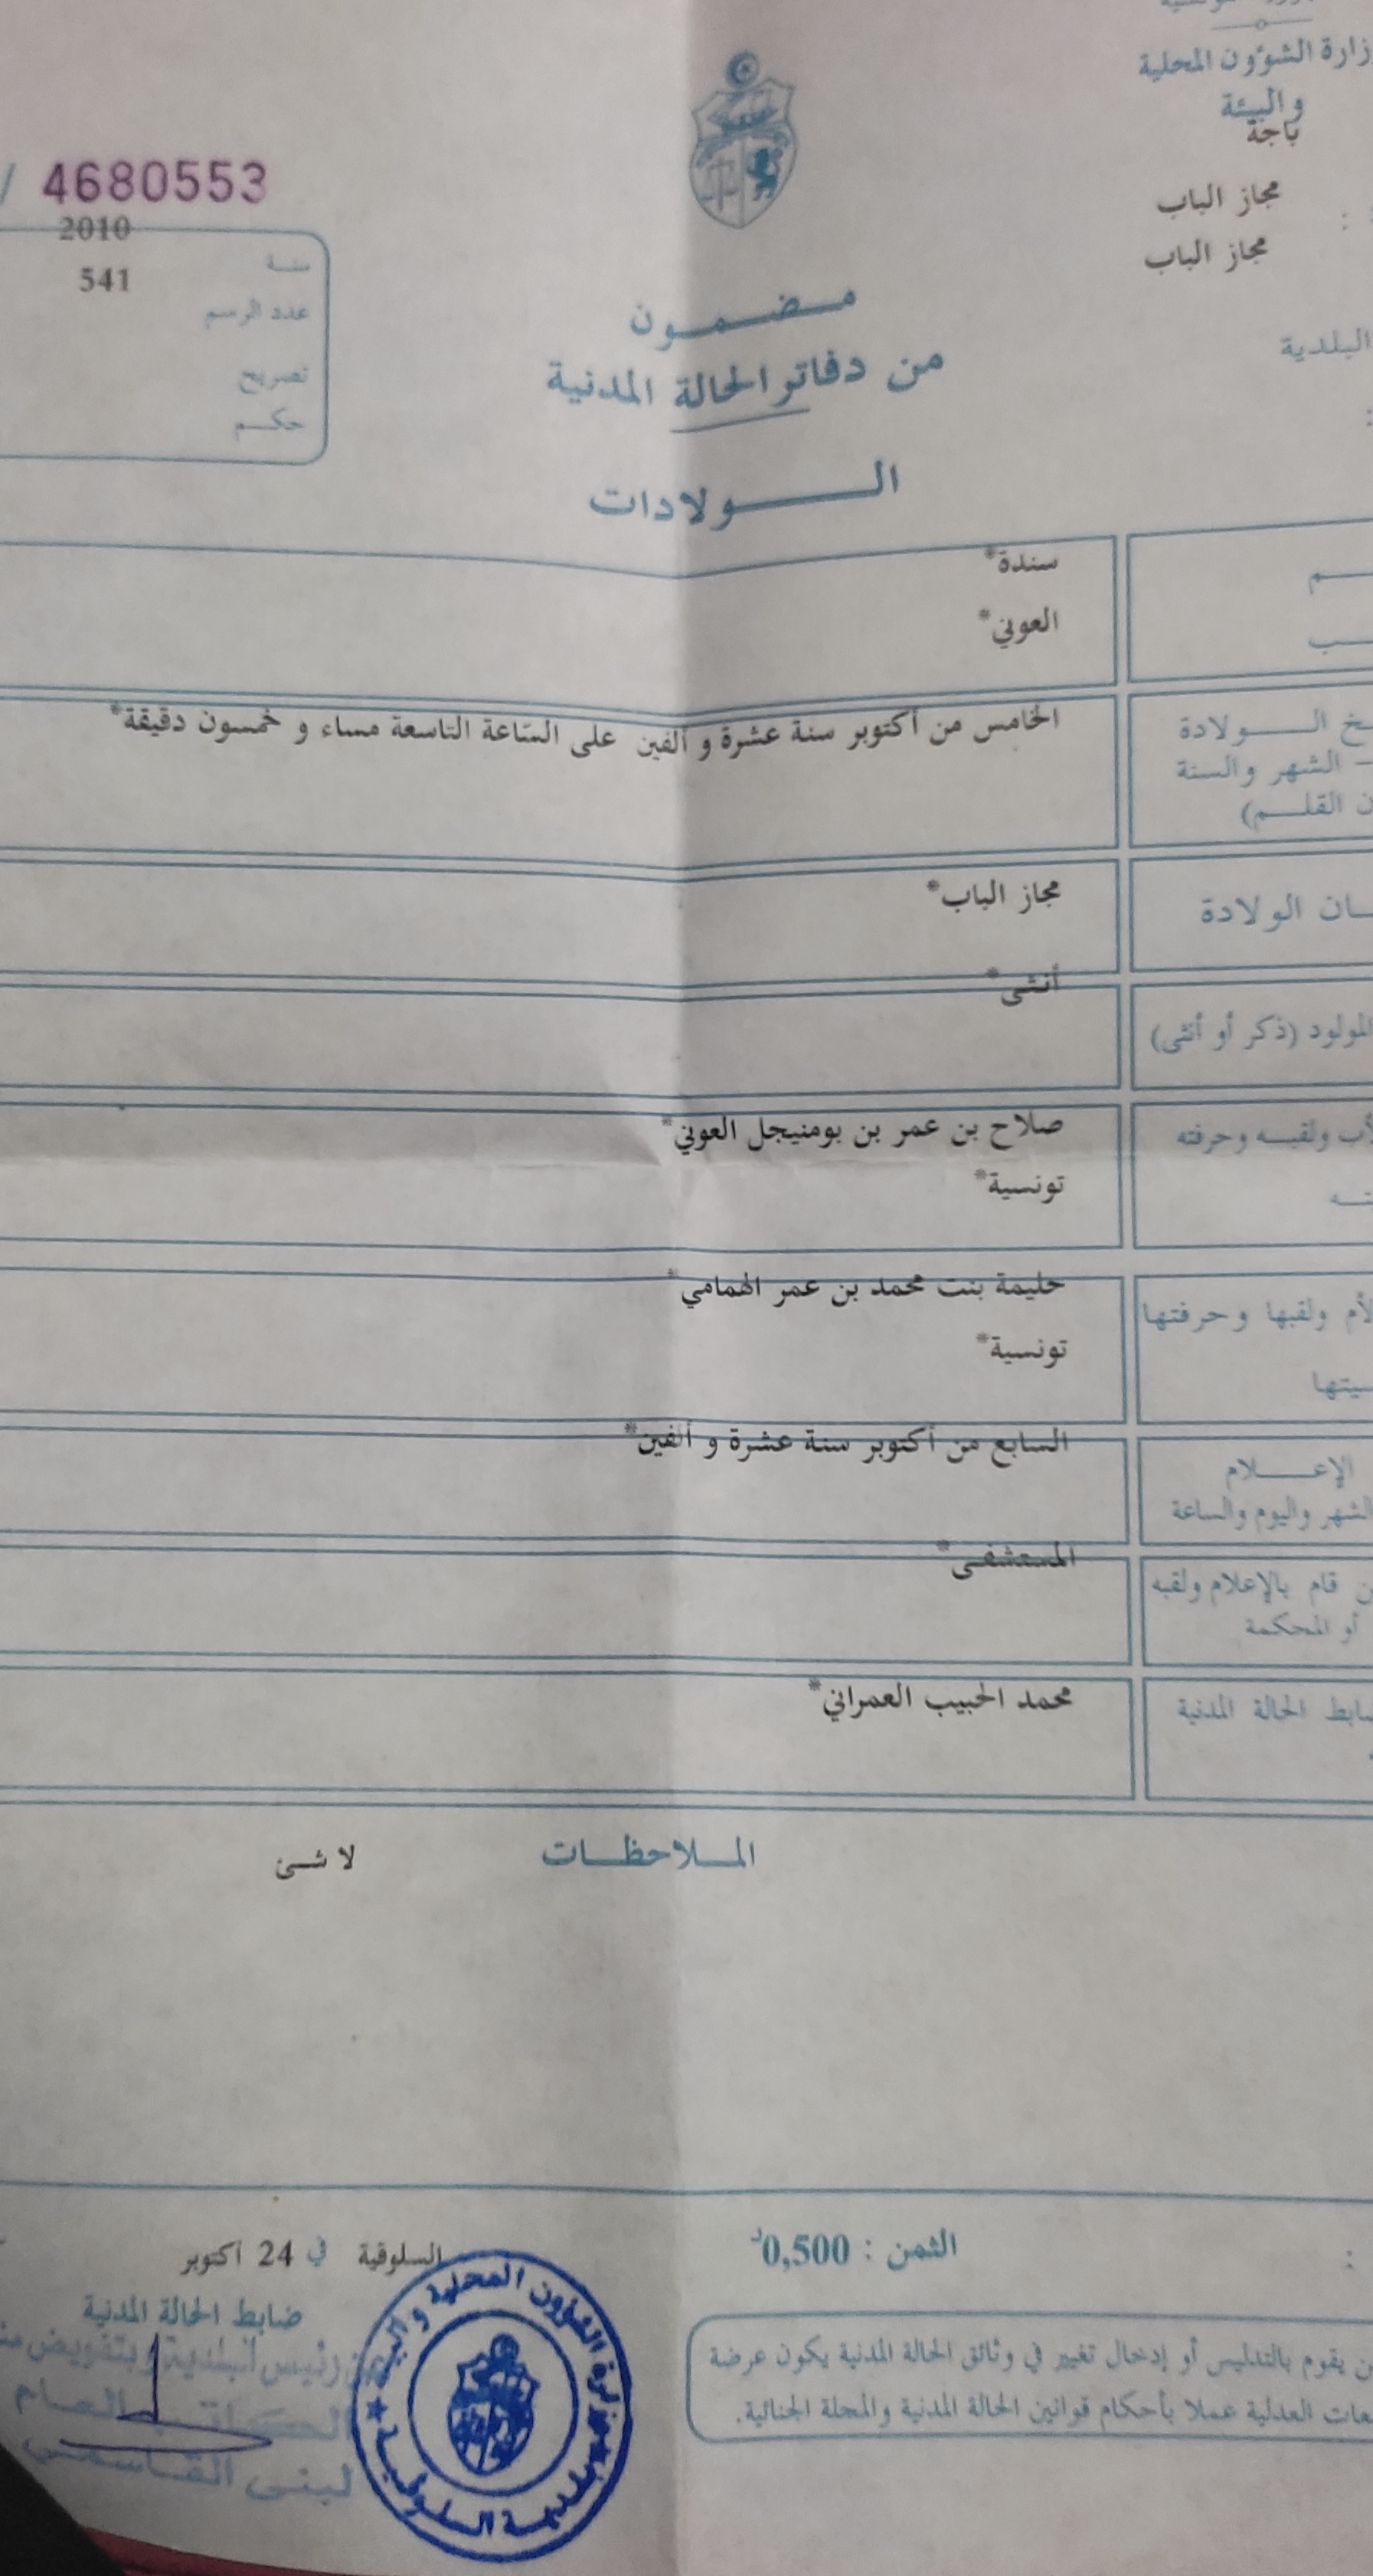 وزارة الشؤون المحلية
والبيئة
باجة
مجاز الباب
مجاز الباب
البلدية
4680553
2010
سنة
541
عدد الرسم
تصريح
حكم
مضمون
من دفاتر الحالة المدنية
الولادات
سندة*
العوني*
الخامس من أكتوبر سنة عشرة و ألفين على الساعة التاسعة مساء و خمسون دقيقة*
الولادة
- الشهر والسنة
القلم)
مجاز الباب*
الولادة
أنثى*
المولود (ذكر أو أنثى)
صلاح بن عمر بن بومنيجل العوني*
ولقبه وحرفته
تونسية*
حليمة بنت محمد بن عمر الهمامي*
ولقبها وحرفتها
تونسية*
السابع من أكتوبر سنة عشرة و ألفين*
الإعلام
الشهر واليوم والساعة
المستشفى*
قام بالإعلام ولقبه
أو المحكمة
محمد الحبيب العمراني*
الحالة المدنية
الملاحظات
لا شئ
الثمن : 0,500د
السلوقية في 24 أكتوبر
ضابط الحالة المدنية
رئيس البلدية وبتفويض منه
العام
لبنى القاسمي
يقوم بالتدليس أو إدخال تغيير في وثائق الحالة المدنية يكون عرضة
العدلية عملا بأحكام قوانين الحالة المدنية والمجلة الجنائية.
وزارة الشؤون المحلية والبيئة
بلدية السلوقية